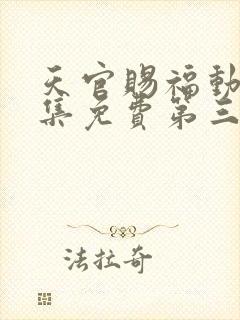 天官賜福動
集免費第三
法拉奇